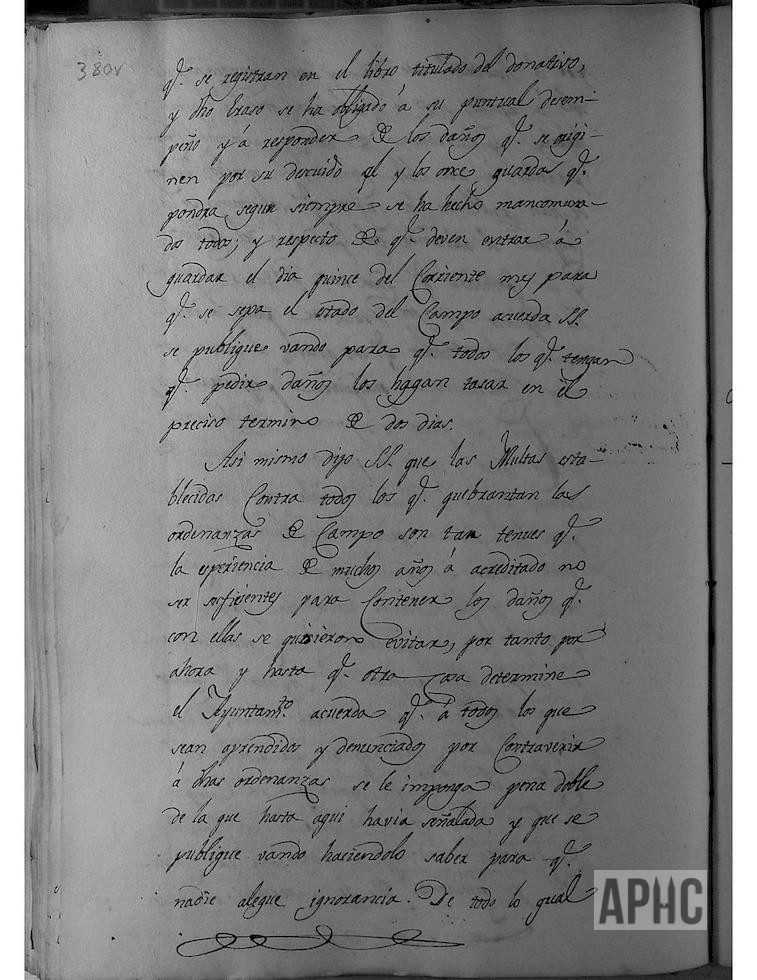 380v
q.e se registran en el libro titulado del donativo,
y dho Eraso se ha obligado á su puntual desem-
peño y á responder de los daños q.e se origi-
nen por su descuido el y los once guardas q.e
pondra segun siempre se ha hecho mancomuna-
dos todos; y respecto de q.e deven entrar á
guardar el dia quince del Corriente mes para
q.e se sepa el estado del Campo acuerda SS.
se publique vando para q.e todos los q.e tengan
q.e pedir daños los hagan tasar en el
preciso termino de dos dias.
Asi mismo dijo SS. que las Multas esta-
blecidas Contra todos los q.e quebrantan las
ordenanzas de Campo son tan tenues q.e
la esperiencia de muchos años á acreditado no
ser suficientes para Contener los daños q.e
con ellas se quisieron evitar, por tanto por
ahora y hasta q.e otra Cosa determine
el Ayuntam.to acuerda q.e á todos los que
sean aprendidos y denunciados por Contravenir
á dhas ordenanzas se le imponga pena doble
de la que hasta aqui havia señalada y que se
publique vando haciendolo saber para q.e
nadie alegue ignorancia. De todo lo qual
APHC